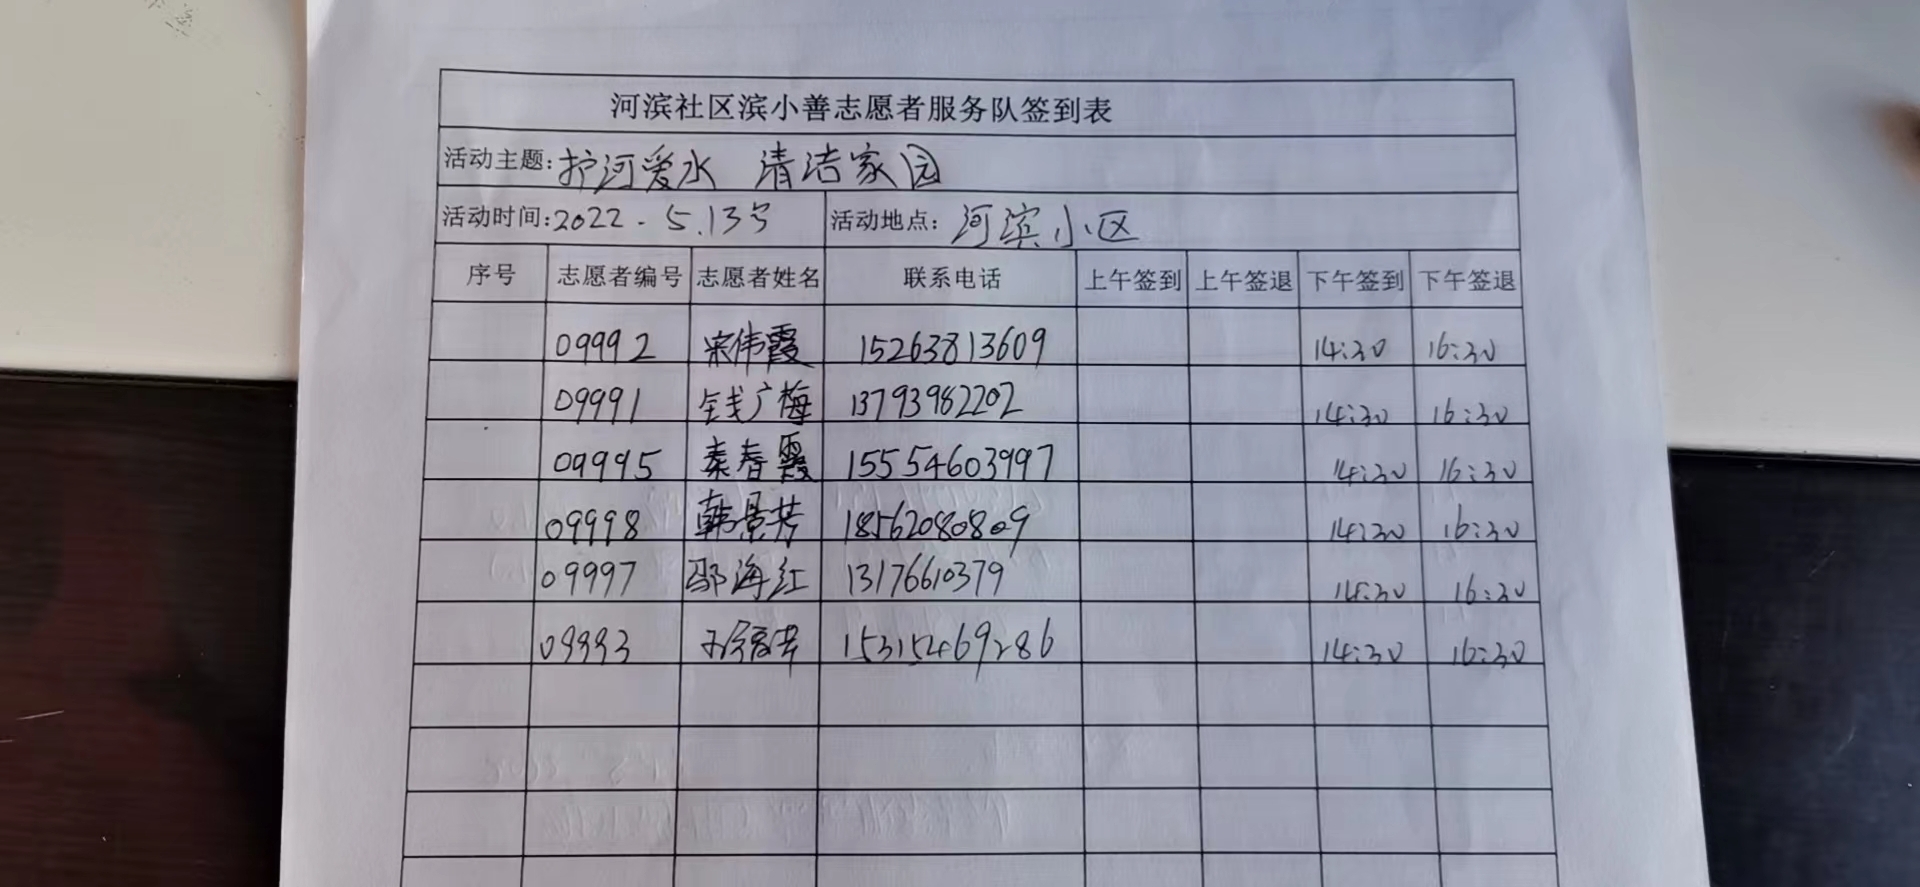 河滨社区滨小善志愿者服务队签到表
活动主题: 护河爱水 清洁家园
活动时间: 2022.5.13号 活动地点: 河滨小区
序号 志愿者编号 志愿者姓名 联系电话 上午签到 上午签退 下午签到 下午签退
09992 宋伟霞 15263813609 14:30 16:30
09991 钱广梅 13793982202 14:30 16:30
09995 秦春霞 15554603997 14:30 16:30
09998 韩景芳 18562080809 14:30 16:30
09997 邵海红 13176610379 14:30 16:30
09993 15315469286 14:30 16:30